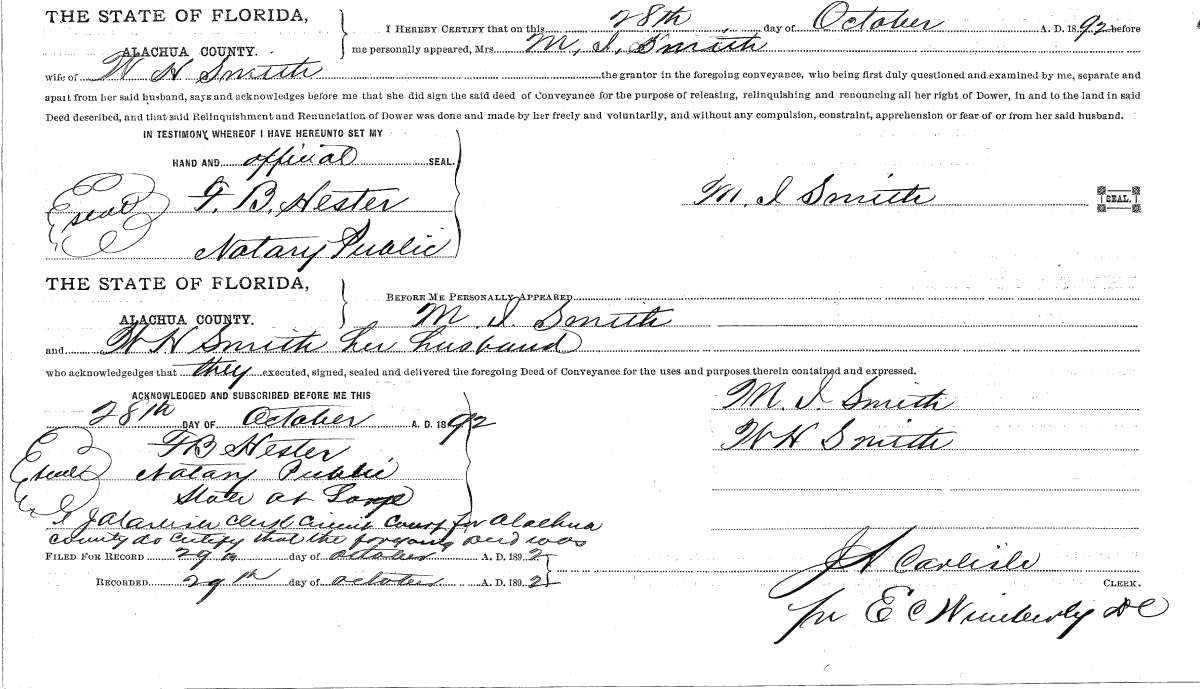 THE STATE OF FLORIDA,
ALACHUA COUNTY.
I HEREBY CERTIFY that on this 28th day of October A. D. 1892 before
me personally appeared, Mrs. M. I. Smith
wife of W H Smith the grantor in the foregoing conveyance, who being first duly questioned and examined by me, separate and
apart from her said husband, says and acknowledges before me that she did sign the said deed of Conveyance for the purpose of releasing, relinquishing and renouncing all her right of Dower, in and to the land in said
Deed described, and that said Relinquishment and Renunciation of Dower was done and made by her freely and voluntarily, and without any compulsion, constraint, apprehension or fear of or from her said husband.
IN TESTIMONY WHEREOF I HAVE HEREUNTO SET MY
HAND AND official SEAL.
seal F. B. Hester
Notary Public
M. I Smith SEAL.
THE STATE OF FLORIDA,
ALACHUA COUNTY.
BEFORE ME PERSONALLY APPEARED
M. I. Smith
and W H Smith her husband
who acknowledgedges that they executed, signed, sealed and delivered the foregoing Deed of Conveyance for the uses and purposes therein contained and expressed.
ACKNOWLEDGED AND SUBSCRIBED BEFORE ME THIS
28th DAY OF October A. D. 1892
F B Hester
seal Notary Public
State at Large
M. I. Smith
W H Smith
I J A Carlisle Clerk Circuit Court for Alachua
County do certify that the foregoing deed was
FILED FOR RECORD 29th day of October A. D. 1892
RECORDED 29th day of October A. D. 1892
J A Carlisle
CLERK.
per E C Wimberly DC